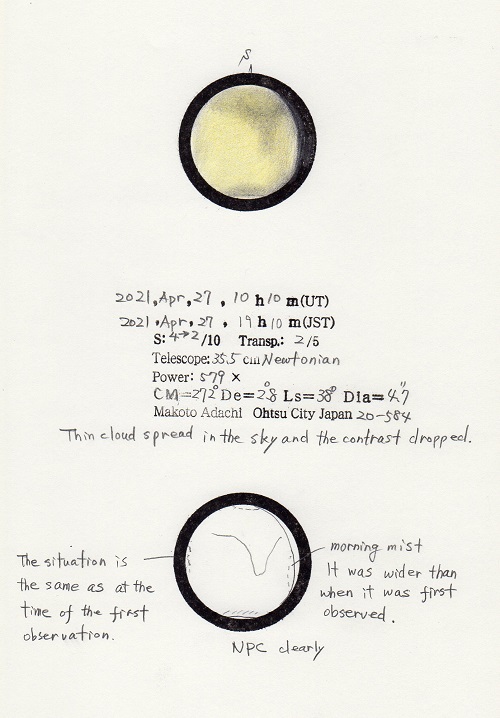 S
2021, Apr, 27, 10 h 10 m (UT)
2021, Apr, 27, 19 h 10 m (JST)
S: 4→2/10 Transp.: 2/5
Telescope: 35.5 cm Newtonian
Power: 579 ×
CM=272° De=2.8° Ls=38° Dia=4.7"
Makoto Adachi Ohtsu City Japan 20-584
Thin cloud spread in the sky and the contrast dropped.
The situation is
the same as at the
time of the first
observation.
morning mist
It was wider than
when it was first
observed.
NPC clearly